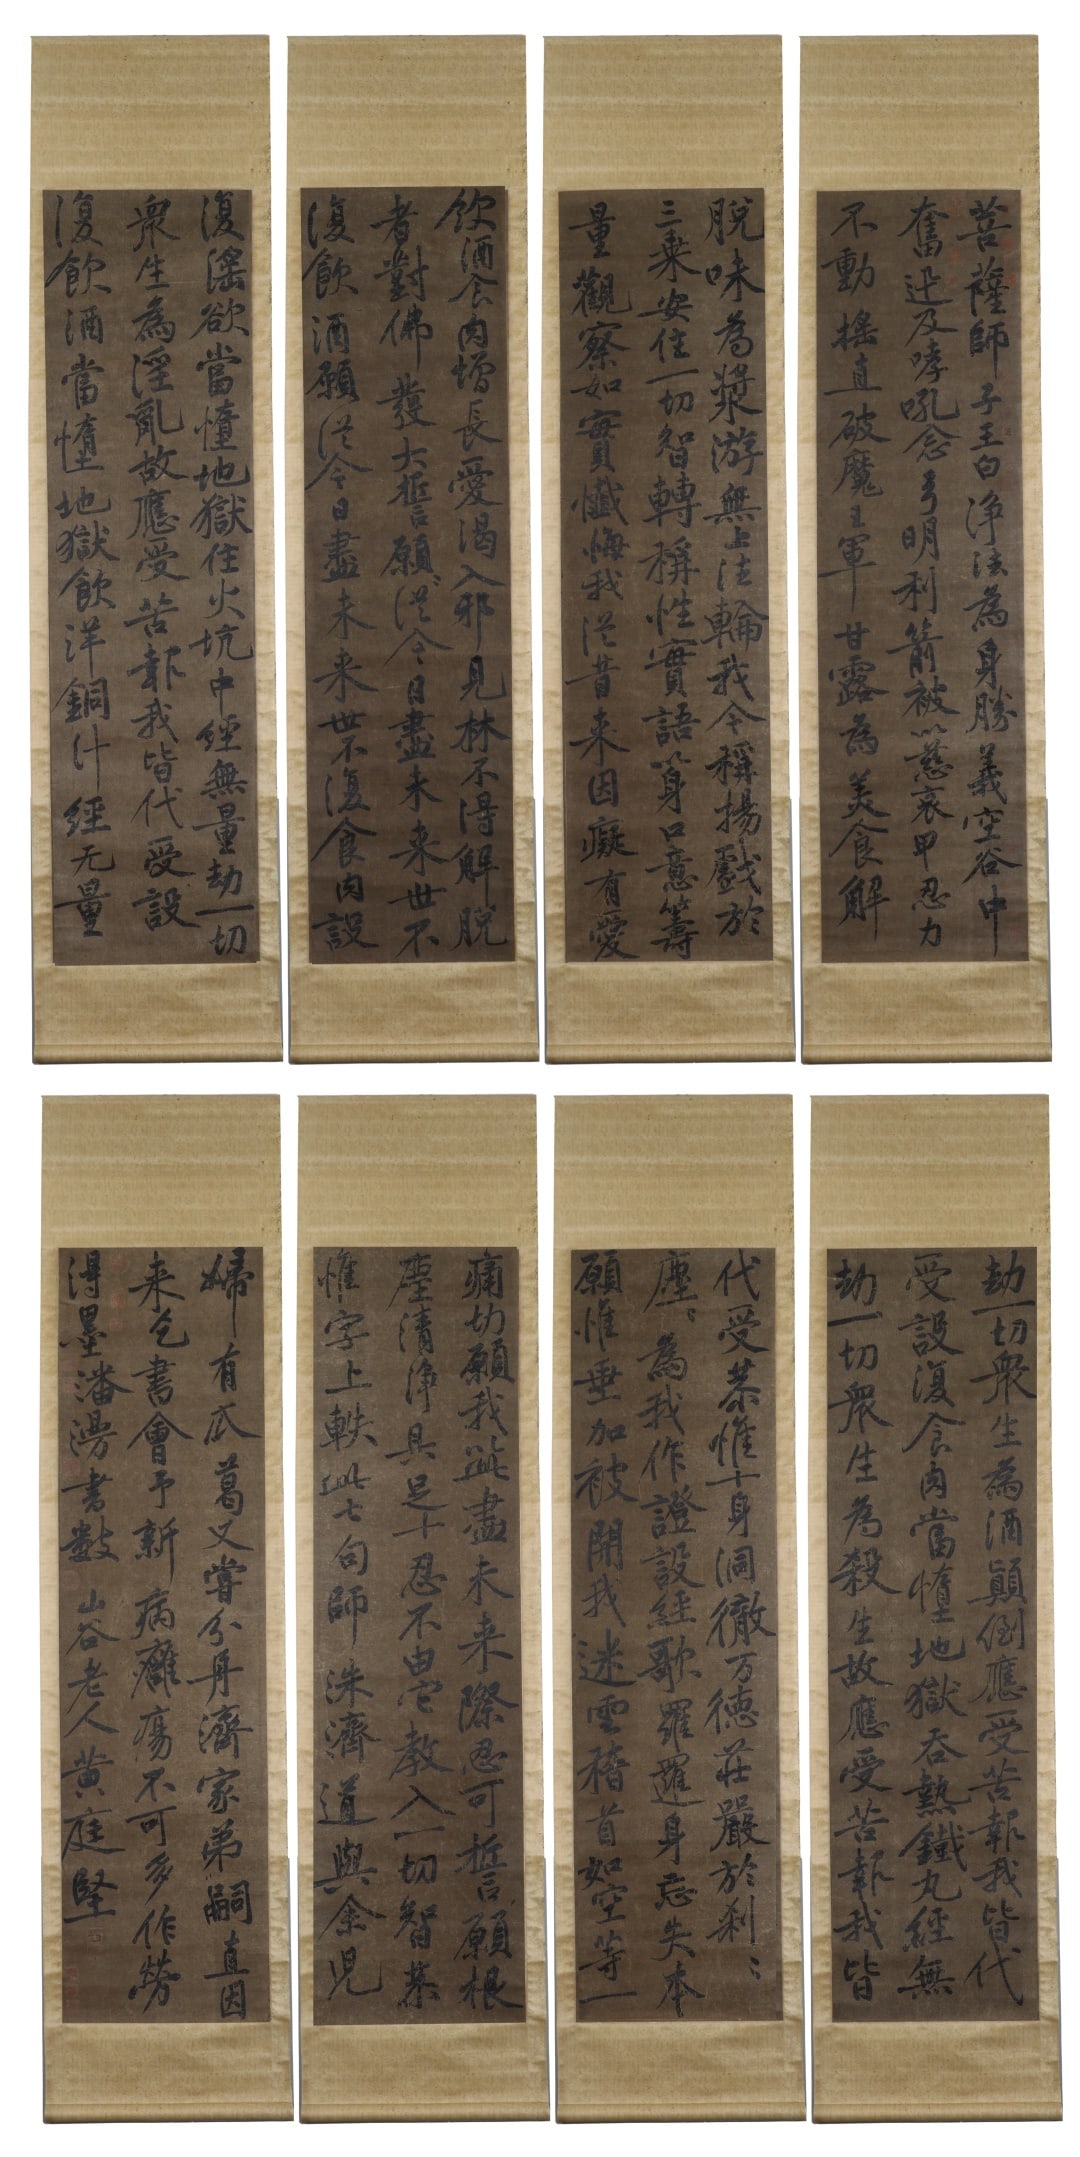 菩薩師子王白淨法為身勝義空谷中
奮迅及哮吼念弓明利箭被以慈哀甲忍力
不動搖直破魔王軍甘露為美食解
脫味為漿游無上法輪我今稱揚戲於
三乘安住一切智轉稱性實語以身口意籌
量觀察如實懺悔我從昔來因癡有愛
飲酒食肉增長愛渴入邪見林不得解脫
者對佛發大誓願從今日盡未來世不
復飲酒願從今日盡未來世不復食肉設
復淫欲當墮地獄住火坑中經無量劫一切
眾生為淫亂故應受苦報我皆代受設
復飲酒當墮地獄飲洋銅汁經无量
劫一切眾生為酒顛倒應受苦報我皆代
受設復食肉當墮地獄吞熱鐵丸經無
劫一切眾生為殺生故應受苦報我皆
代受恭惟十身洞徹万德莊嚴於剎〻
塵〻為我作證設經歌羅邏身忘失本
願惟垂加被開我迷雲稽首如空等一
痛切願我此盡未來際忍可誓言願根
塵清淨具足十忍不由它教入一切智恭
惟字上軼此七句師洙濟道與余兒
婦有瓜葛又嘗分舟濟家弟嗣直因
來乞書會予新病癰瘍不可多作勞
得墨瀋漫書數山谷老人黃庭堅